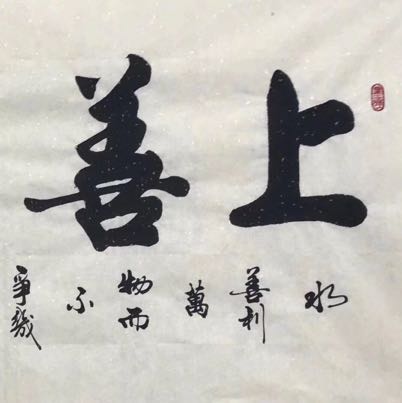 上善
水善利萬物而不爭